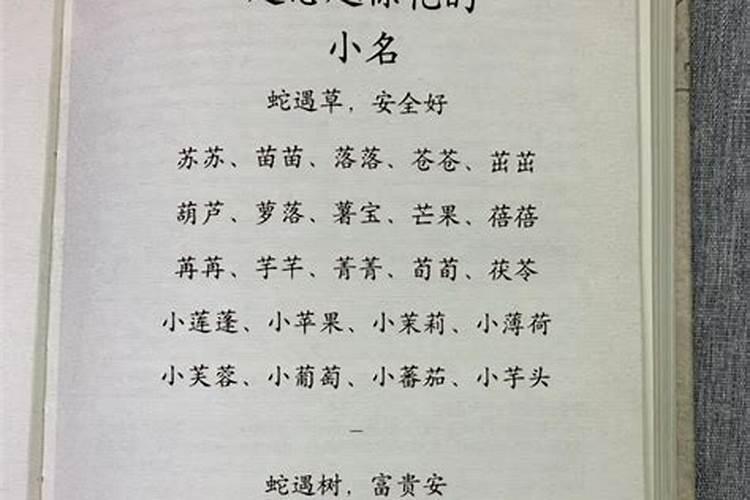 小名
蛇遇草，安全好
苏苏、苗苗、落落、苍苍、茁茁
葫芦、萝落、薯宝、芒果、蓓蓓
苒苒、芋芊、菁菁、荀荀、茯苓
小莲蓬、小苹果、小茉莉、小薄荷
小芙蓉、小葡萄、小蕃茄、小芋头
—
蛇遇树，富贵安